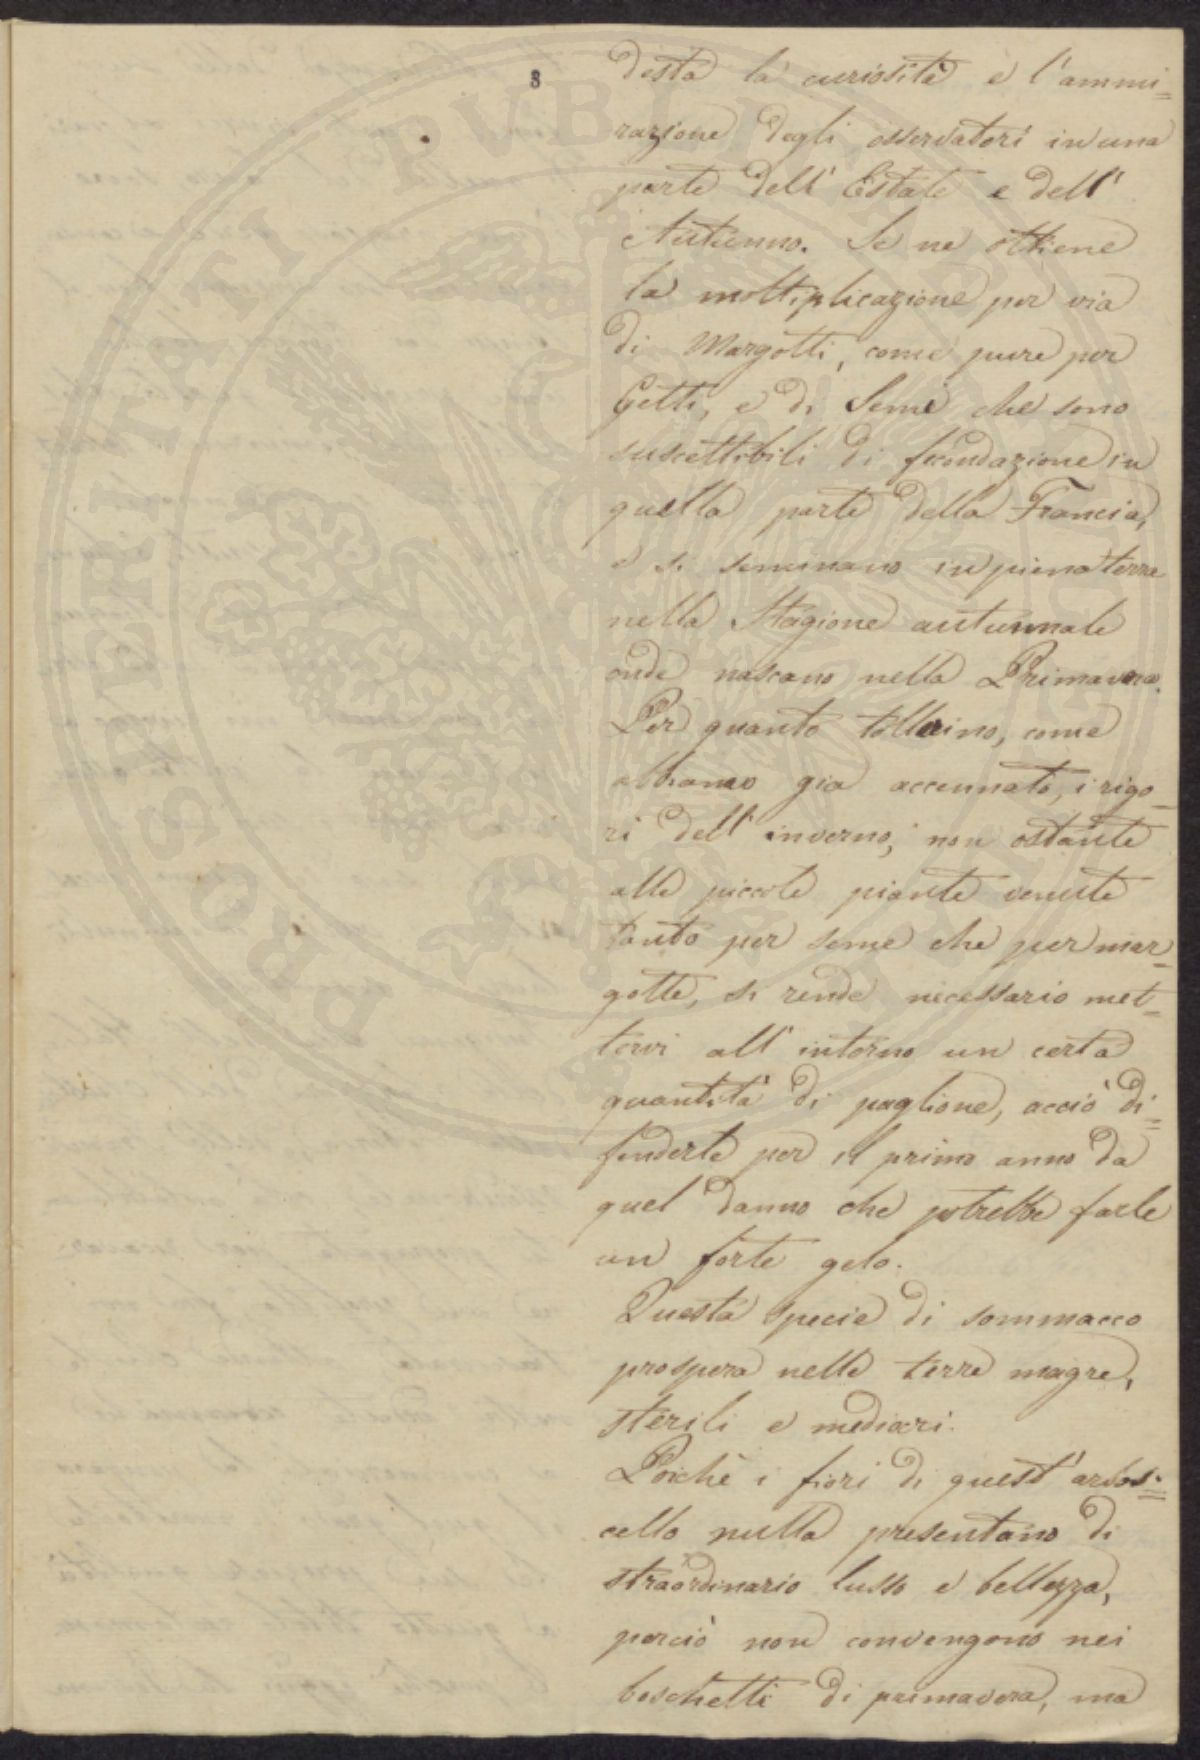 8
desta la curiosità e l'ammi=
razione degli osservatori in una
parte dell'Estate e dell'
Autunno. Se ne ottiene
la moltiplicazione per via
di Margotti, come pure per
Getti, e di Semi che sono
suscettibili di fecondazione in
quella parte della Francia,
e si seminano in piena terra
nella Stagione autunnale
onde nascano nella Primavera.
Per quanto tollerino, come
abbiamo già accennato, i rigo=
ri dell'inverno, non ostante
alle piccole piante venute
tanto per seme che per mar=
gotte, si rende necessario met=
tervi all'intorno un certa
quantità di paglione, acciò di=
fenderle per il primo anno da
quel danno che potrebbe farle
un forte gelo.
Questa specie di sommacco
prospera nelle terre magre,
sterili e mediocri.
Poichè i fiori di quest'arbos=
cello nulla presentano di
straordinario lusso e bellezza,
perciò non convengono nei
boschetti di primavera, ma
PROSPERITATI PVBLI